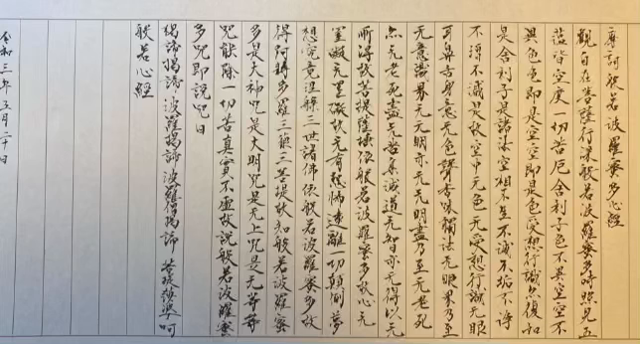 摩訶般若波羅蜜多心經
觀自在菩薩行深般若波羅蜜多時照見五
蘊皆空度一切苦厄舍利子色不異空空不
異色色即是空空即是色受想行識亦復如
是舍利子是諸法空相不生不滅不垢不淨
不増不減是故空中无色无受想行識无眼
耳鼻舌身意无色聲香味觸法无眼界乃至
无意識界无无明亦无无明盡乃至无老死
亦无老死盡无苦集滅道无智亦无得以无
所得故菩提薩埵依般若波羅蜜多故心无
罣礙无罣礙故无有恐怖遠離一切顛倒夢
想究竟涅槃三世諸佛依般若波羅蜜多故
得阿耨多羅三藐三菩提故知般若波羅蜜
多是大神咒是大明咒是无上咒是无等等
咒能除一切苦真實不虚故説般若波羅蜜
多咒即説咒曰
揭諦揭諦 波羅揭諦 波羅僧揭諦 菩提娑婆呵
般若心經
令和三年五月二十日